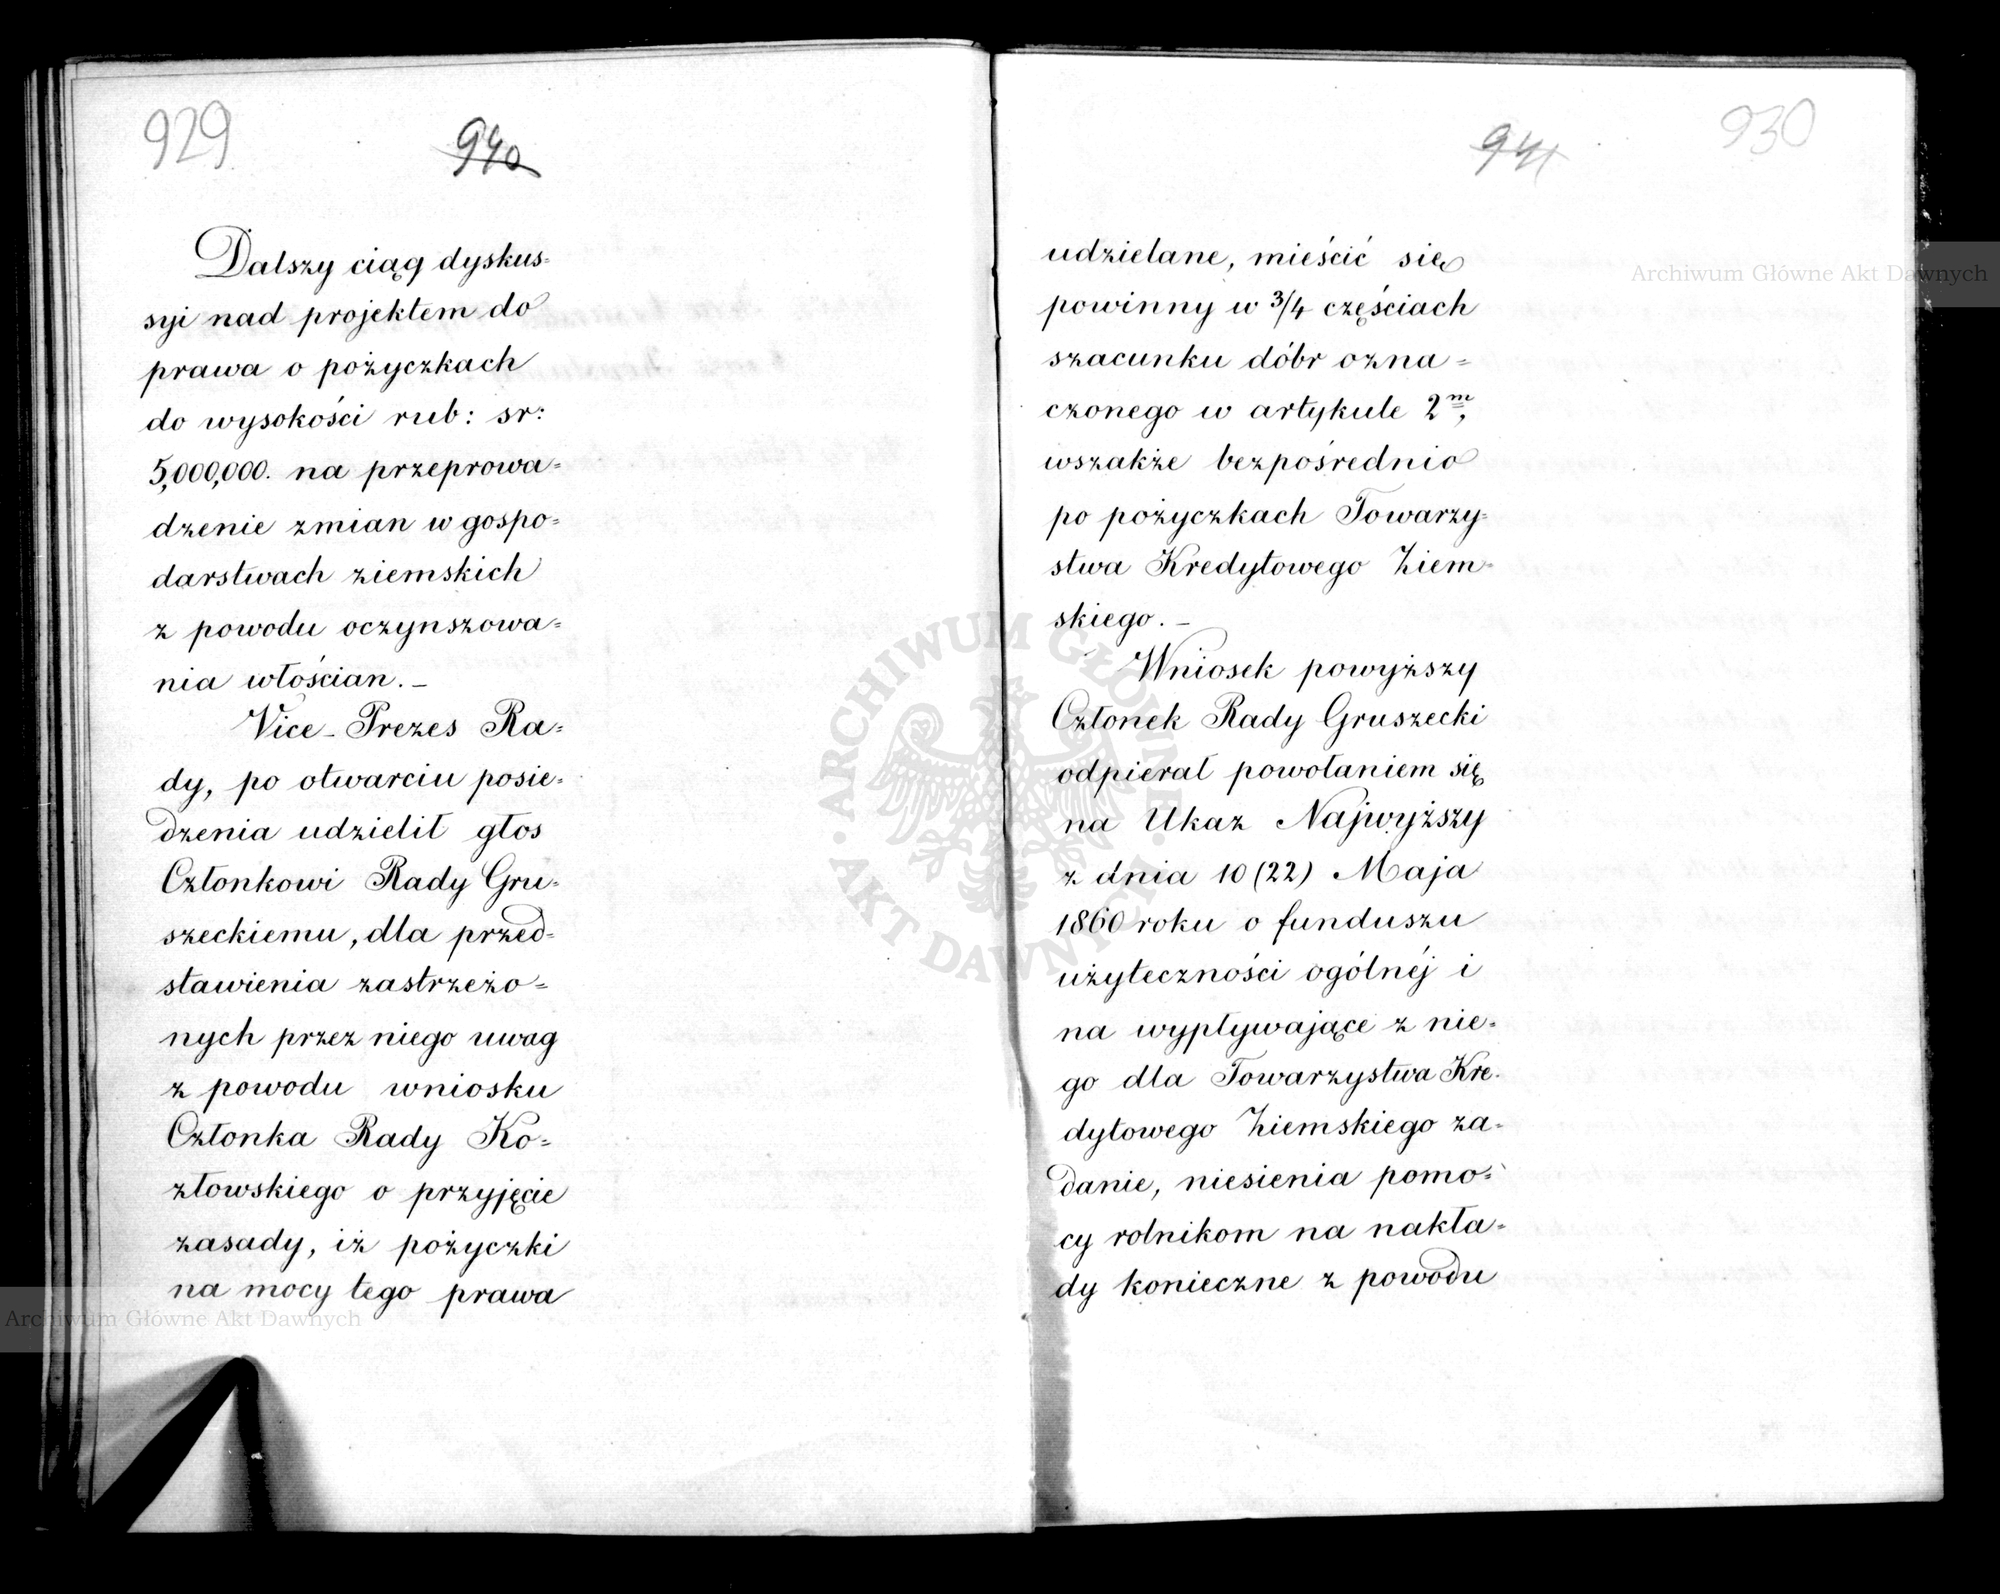 929
940
Dalszy ciąg dyskus=
syi nad projektem do
prawa o pożyczkach
do wysokości rub: sr:
5,000,000. na przeprowa=
dzenie zmian w gospo=
darstwach ziemskich
z powodu oczynszowa=
nia włościan. –
Vice-Prezes Ra=
dy, po otwarciu posie=
dzenia udzielił głos
Członkowi Rady Gru=
szeckiemu, dla przed=
stawienia zastrzeżo=
nych przez niego uwag
z powodu wniosku
Członka Rady Ko=
złowskiego o przyjęcie
zasady, iż pożyczki
na mocy tego prawa
941
930
udzielane, mieścić się
powinny w 3/4 częściach
szacunku dóbr ozna=
czonego w artykule 2m,
wszakże bezpośrednio
po pożyczkach Towarzy=
stwa Kredytowego Ziem=
skiego. –
Wniosek powyższy
Członek Rady Gruszecki
odpierał powołaniem się
na Ukaz Najwyższy
z dnia 10 (22) Maja
1860 roku o funduszu
użyteczności ogólnéj i
na wypływające z nie=
go dla Towarzystwa Kre=
dytowego Ziemskiego za=
danie, niesienia pomo=
cy rolnikom na nakła=
dy konieczne z powodu
Archiwum Główne Akt Dawnych
Archiwum Główne Akt Dawnych
ARCHIWUM GŁÓWNE · AKT DAWNYCH ·